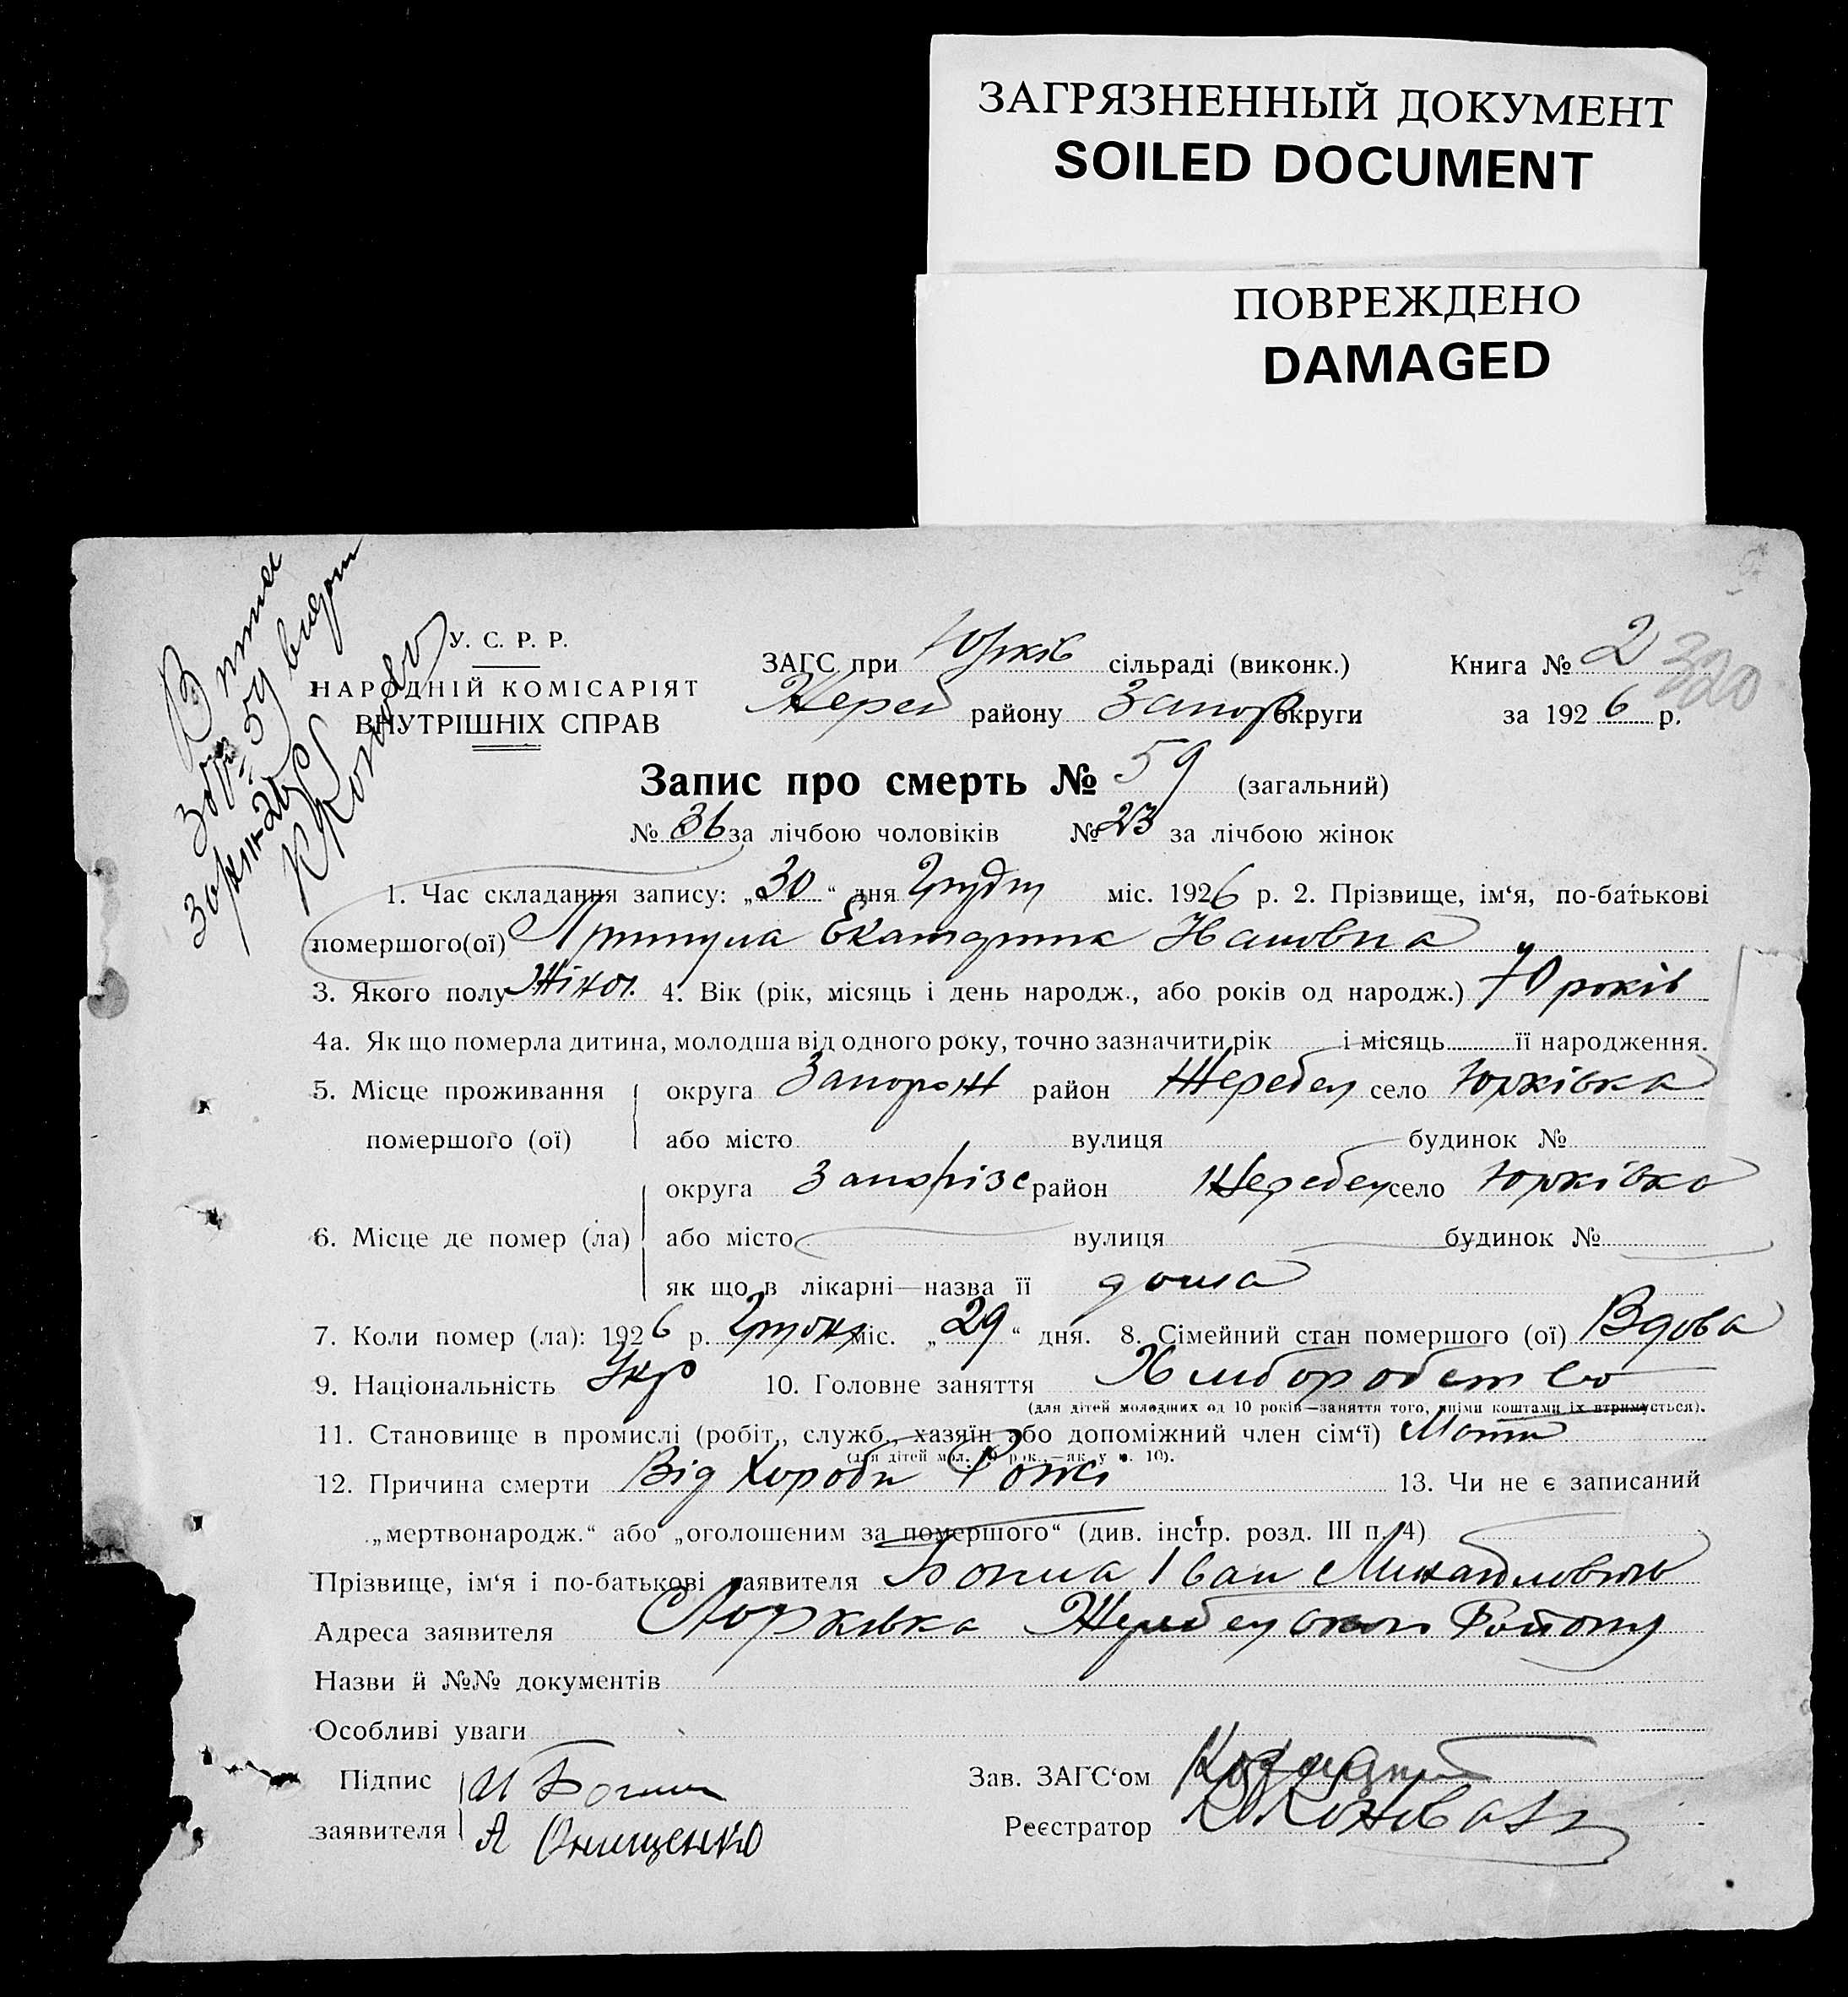 ЗАГРЯЗНЕННЫЙ ДОКУМЕНТ
SOILED DOCUMENT
ПОВРЕЖДЕНО
DAMAGED
У. С. Р. Р.
НАРОДНІЙ КОМІСАРІЯТ
ВНУТРІШНІХ СПРАВ
ЗАГС при Юрків сільраді (виконк.)
Жереб району Запор округи
Книга № 2 320
за 1926 р.
Запис про смерть № 59 (загальний)
№ 36 за лічбою чоловіків № 23 за лічбою жінок
1. Час складання запису: „30“ дня Грудня міс. 1926 р. 2. Прізвище, ім‘я, по-батькові
помершого(ої) Екатерина
3. Якого полу Жіноч. 4. Вік (рік, місяць і день народж., або років од народж.) 70 років
4а. Як що померла дитина, молодша від одного року, точно зазначити рік і місяць її народження.
5. Місце проживання помершого (ої) округа Запорож район Жеребец село Юрківка
або місто вулиця будинок №
6. Місце де помер (ла) округа Запоріз район Жеребец село Юрківка
або місто вулиця будинок №
як що в лікарні—назва її дома
7. Коли помер (ла): 1926 р. Грудня міс. „29“ дня. 8. Сімейний стан помершого (ої) Вдова
9. Національність Укр 10. Головне заняття Хліборобство
(для дітей молодших од 10 років—заняття того, якіми коштами їх втримується).
11. Становище в промислі (робіт., служб., хазяїн або допоміжний член сім‘ї) Мати
(для дітей мол. 10 рок.—як у п. 10).
12. Причина смерти Від Хороби Рожі 13. Чи не є записаний
„мертвонародж.“ або „оголошеним за помершого“ (див. інстр. розд. III п. 4)
Прізвище, ім‘я і по-батькові заявителя Іван Михайлович
Адреса заявителя Юрківка Жеребецького Району
Назви й №№ документів
Особливі уваги
Підпис заявителя И
А Онищенко
Зав. ЗАГС‘ом
Реєстратор Коновал